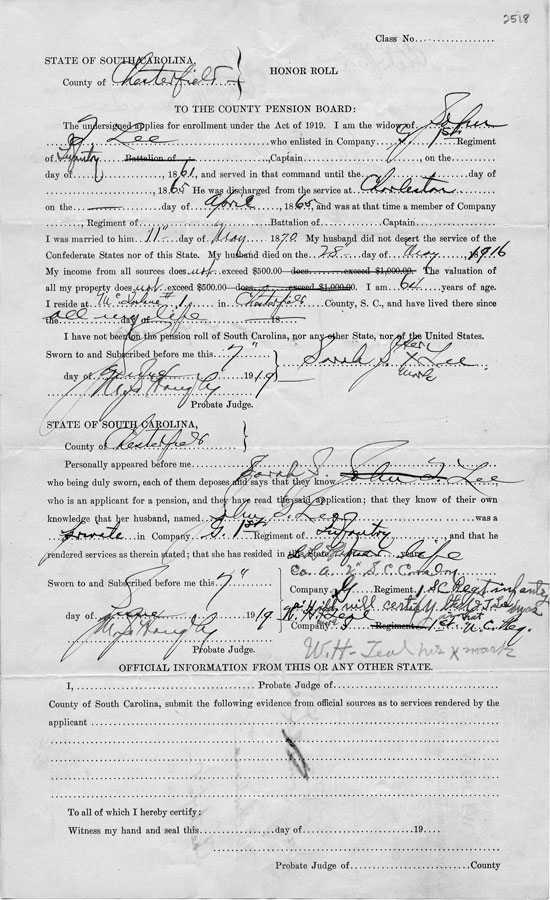 2518
Class No.
STATE OF SOUTH CAROLINA,
County of Chesterfield
HONOR ROLL
TO THE COUNTY PENSION BOARD:
The undersigned applies for enrollment under the Act of 1919. I am the widow of John
J Lee who enlisted in Company G, 1st Regiment
of Infantry Battalion of , Captain , on the
day of , 1861, and served in that command until the day of
, 1865 He was discharged from the service at Charleston
on the day of April , 1865, and was at that time a member of Company
, Regiment of Battalion of Captain
I was married to him 11" day of May 1870. My husband did not desert the service of the
Confederate States nor of this State. My husband died on the 28" day of May, 1916
My income from all sources does not exceed $500.00 does exceed $1,000.00. The valuation of
all my property does not exceed $500.00 does exceed $1,000.00. I am 64 years of age.
I reside at in Chesterfield County, S. C., and have lived there since
the day of 18
all my life
I have not been on the pension roll of South Carolina, nor any other State, nor of the United States.
Sworn to and Subscribed before me this 7"
day of 1919
Sarah J. her x mark Lee
Probate Judge.
STATE OF SOUTH CAROLINA,
County of Chesterfield
Personally appeared before me
Sarah J. John J. Lee
who being duly sworn, each of them deposes and says that they know
who is an applicant for a pension, and they have read the said application; that they know of their own
knowledge that her husband, named John J. Lee was a
private in Company G. 1st Regiment of Infantry , and that he
rendered services as therein stated; that she has resided in Life
Co. A.
Sworn to and Subscribed before me this 7"
Company G Regiment. 1 S.C. Regt infantry
day of 1919
will certify that J Lee was
Company Regiment 1st
Probate Judge.
W. H. Teal his x mark
OFFICIAL INFORMATION FROM THIS OR ANY OTHER STATE.
I, Probate Judge of
County of South Carolina, submit the following evidence from official sources as to services rendered by the
applicant
To all of which I hereby certify:
Witness my hand and seal this day of 19
Probate Judge of County